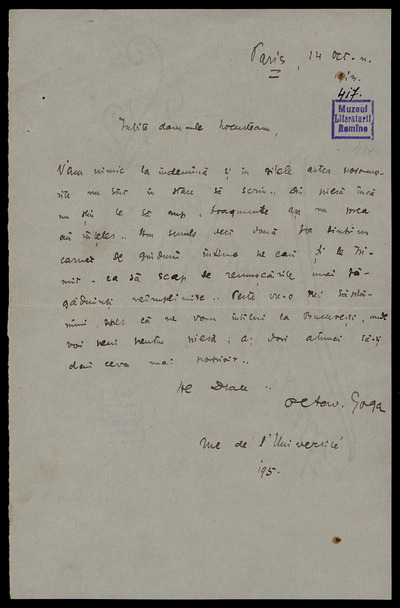 Paris, 14 Oct. n.
417.
Muzeul
Literaturii
Romîne
Iubite domnule Locusteanu,
N'am nimic la îndemînă și în zilele astea
nu sînt în stare să scriu.. Din piesă încă
nu știu ce să rup, fragmente aș nu prea
au înțeles.. Am smuls deci două foi dintr'un
carnet de gînduri intime pe cari ți le tri-
mit - ca să scap de remușcările unei fă-
găduinți neîmplinite.. Peste vre-o trei săptă-
mîni, sper că ne vom întîlni la București, unde
voi veni pentru piesă; aș dori atunci să-ți
dau ceva mai potrivit..
Octav. Goga
rue de l'Université
195.